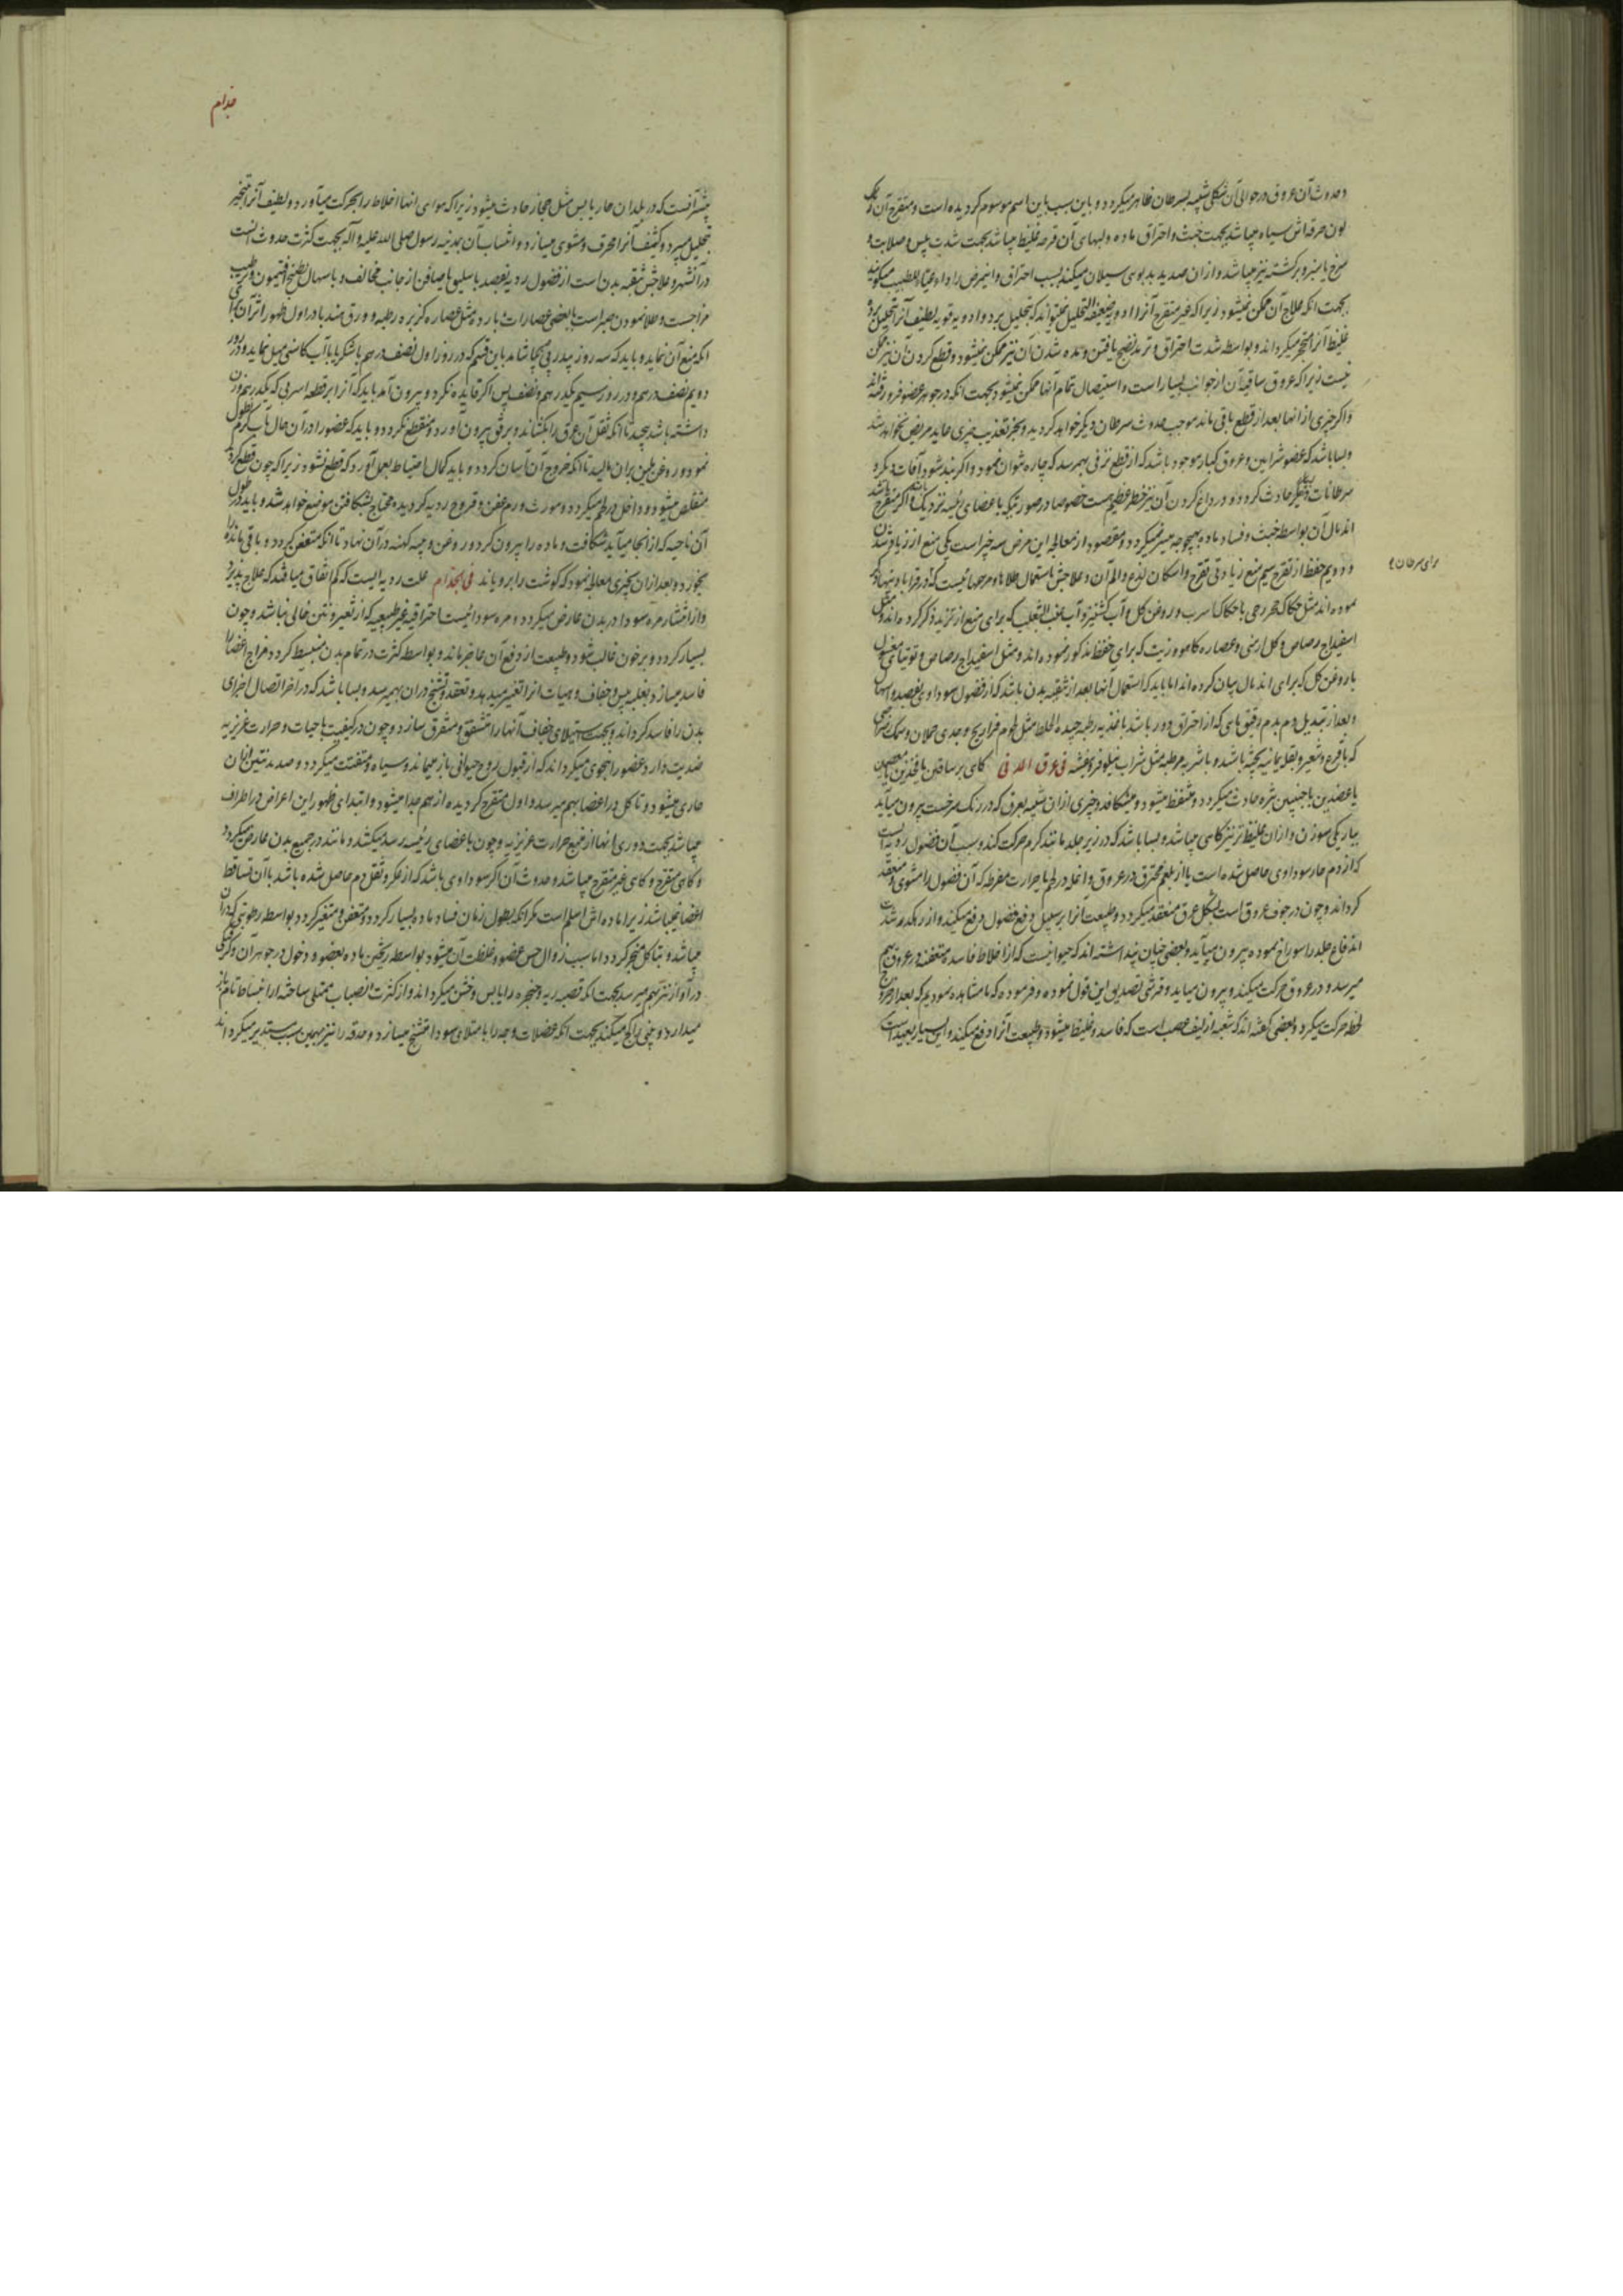 و حدوث آن عروق در حوالی آن شکلی شبیه بسرطان ظاهر میکردد و باین سبب باین اسم موسوم کردیده است و متقرح آن
لون حرقه اش سیاه میباشد بجهت خبث و احتراق ماده و لبهای آن قرحه غلیظ میباشد بجهت شدت یبس و صلابت و
سرخ یا سبز و برکشته نیز میباشد و از ان صدید بدبوی سیلان میکند بسبب احتراق و اینمرض را داء اعیاء الطبیب میکویند
بجهت انکه علاج آن ممکن نمیشود زیرا که غیر متقرح آنرا ادویه ضعیفة التحلیل نمیتواند که تحلیل برد و ادویه قویه لطیف آنرا تحلیل برد و
غلیظ آنرا متحجر میکرداند و بواسطه شدت احتراق و ترمد نضج یافتن و مده شدن آن نیز ممکن نمیشود و قطع کردن آن نیز ممکن
نیست زیرا که عروق ساقیه آن از جوانب بسیار است و استیصال تمام آنها ممکن نمیشود بجهت انکه در جوهر عضو فرو رفته اند
و اکر چیزی از انها بعد از قطع باقی ماند موجب حدوث سرطان دیکر خواهد کردید و بجز تعذیب چیزی عاید مریض نخواهد شد
و بسا باشد که عضو شرایین و عروق کبار موجود باشد که از قطع نزفی بهم رسد که چاره نتوان نمود و اکر بند شود آفات دیکر و
سرطانات دیکر حادث کردد و در داغ کردن آن نیز خطر عظیم هست خصوصا در صورتیکه باعضای رئیسه نزدیک باشد و اکر متقرح باشد
اندمال آن بواسطه خبث و فساد ماده بهیچوجه میسر نمیکردد و مقصود از معالجه این مرض سه چیز است یکی منع از زیاد شدن
و دویم حفظ از تقرح سیم منع زیادتی تقرح و اسکان لذع و الم آن و علاجش باستعمال طلاها و مرهمهائیست که در قرابادینها ذکر
نموده اند مثل حکاکه حجر رحی با حکاکه اسرب و روغن کل و آب کشنیز و آب عنب الثعلب که برای منع از تزید ذکر کرده اند و مثل
اسفیداج رصاص و کل ارمنی و عصاره کاهو و زیت که برای حفظ مذکور نموده اند و مثل اسفیداج رصاص و توتیای مغسول
با روغن کل که برای اندمال بیان کرده اند اما باید که استعمال آنها بعد از تنقیه بدن باشد که از فضول سوداوی بفصد و اسهال
و بعد از تبدیل دم بدم رقیق مائی که از احتراق دور باشد باغذیه رطبه جیده الخلط مثل لحوم فراریج و جدی حملان و سمک رضراضی
که با قرع و شعیر و بقله یمانیه پخته باشند و باشربه مرطبه مثل شراب نیلوفر و بنفشه فی عرق المدنی کاهی بر ساقین یا فخذین یا معصمین
یا عضدین یا جنبین بثره حادث میکردد و متنفط میشود و میشکافد و چیزی از ان شبیه بعرق که در رنک سرخست بیرون میآید
بباریکی سوزن و از ان غلیظ تر نیز کاهی میباشد و بسا باشد که در زیر جلد مانند کرم حرکت کند و سبب آن فضول ردیه است
که از دم حار سوداوی حاصل شده است یا از بلغم محترق در عروق داخله در لحم با حرارت مفرطه که آن فضول را مشوی و منعقد
کرداند و چون در جوف عروق است بشکل عرق منعقد میکردد و طبیعت آنرا بر سبیل دفع فضول دفع میکند و از رهکذر شدت
اندفاع جلد را سوراخ نموده بیرون میآید و بعضی چنان پنداشته اند که حیوانیست که از اخلاط فاسده متعفنه در عروق بهم
میرسد و در عروق حرکت میکند و بیرون میاید و قرشی تصدیق این قول نموده و فرموده که ما مشاهده نمودیم که بعد از خروج
لحظه حرکت میکرد و بعضی کفته اند که شعبه از لیف عصب است که فاسد و غلیظ میشود و طبیعت آنرا دفع میکند و این بسیار بعید است
برای سرطان
جذام
بیشتر آنست که در بلدان حار یابس مثل حجاز حادث میشود زیرا که هوای انها اخلاط را بحرکت میآورد و لطیف آنرا بتبخیر
تحلیل میبرد و کثیف آنرا محرق و مشوی میسازد و انتساب آن بمدینه رسول صلی الله علیه و آله بجهت کثرت حدوث انست
در آنشهر و علاجش تنقیه بدن است از فضول ردیه بفصد باسلیق یا صافن از جانب مخالف و باسهال بطبیخ افتیمون و ترطیب
مزاجست و طلا نمودن صبر است با بعضی عصارات بارده مثل عصاره کزبره رطبه و ورق هندبا در اول ظهور اثر آن برای
انکه منع آن نماید و باید که سه روز پیدرپی بیاشامد باین قسم که در روز اول نصف درهم با شکر یا با آب کاسنی میل نماید و در روز
دویم نصف درهم و در روز سیم یکدرهم و نصف پس اکر فایده نکرد و بیرون آمد باید که آنرا بر قطعه اسربی که یکدرهم وزن
داشته باشد بپیچد تا انکه ثقل آن عرق را بکشاند و برفق بیرون آورد و منقطع نکردد و باید که عضو را در آن حال بآب کرم نطول
نمود و روغن ملین بر ان مالید تا انکه خروج آن آسان کردد و باید کمال احتیاط بعمل آورد که قطع نشود زیرا که چون قطع کردد
متقلص میشود و داخل در لحم میکردد و مورث ورم عفن و قروح ردیه کردیده محتاج بشکافتن موضع خواهد شد و باید در طول
آن ناحیه که از انجا میآید شکافت و ماده را بیرون کرد و روغن و پنبه کهنه در آن نهاد تا انکه متعفن کردد و باقی مانده
بخوازد و بعد از ان بچیزی معالجه نمود که کوشت را برویاند فی الجذام علت ردیه ایست که کم اتفاق میافتد که علاج پذیرد
و از انتشار مره سودا در بدن عارض میکردد و مره سودائیست احتراقیه غیر طبیعیه که از تغیر و نتن خالی نباشد و چون
بسیار کردد و بر خون غالب شود و طبیعت از دفع آن عاجز ماند و بواسطه کثرت در تمام بدن منبسط کردد مزاج اعضا را
فاسد میسازد بغلبه یبس و جفاف و هیئات انرا تغیر میدهد و تعقد و تشنج در ان بهم میرسد و بسا باشد که در اخر اتصال اجزای
بدن را فاسد کرداند و بجهت استیلای جفاف آنها را متشقق و متفرق سازد و چون در کیفیت با حیات و حرارت غریزیه
ضدیت دارد عضو را بنحوی میکرداند که از قبول روح حیوانی باز میماند و سیاه و متفتت میکردد و صدید منتن از ان
جاری میشود و تاکل در اعضا بهم میرسد و اول متقرح کردیده از هم جدا میشود و ابتدای ظهور این اعراض در اطراف
میباشد بجهت دوری انها از منبع حرارت غریزیه و چون باعضای رئیسه رسد میکشد و مانند در جمیع بدن عارض میکردد
و کاهی متقرح و کاهی غیر متقرح میباشد و حدوث آن اکر سوداوی باشد که از عکر و ثفل دم حاصل شده باشد با آن تساقط
اعضا نمیباشد زیرا ماده اش اسلم است مکر انکه بطول زمان فساد ماده بسیار کردد و متعفن و متغیر کردد بواسطه رطوبتی که در ان
میباشد و بتاکل منجر کردد اما سبب زوال حس عضو و غلظت آن میشود بواسطه ریختن ماده بعضو و دخول در جوهر آن و کرفتکی
در آواز نیز بهم میرسد بجهت انکه قصبه ریه و حنجره را یابس و خشن میکرداند و از کثرت انصباب ممتلی ساخته از انبساط تام باز
میدارد و چین میکند بجهت انکه عضلات وجه را بامتلای سودا متشنج میسازد و حدقه را نیز بهمین سبب مستدیر میکرداند